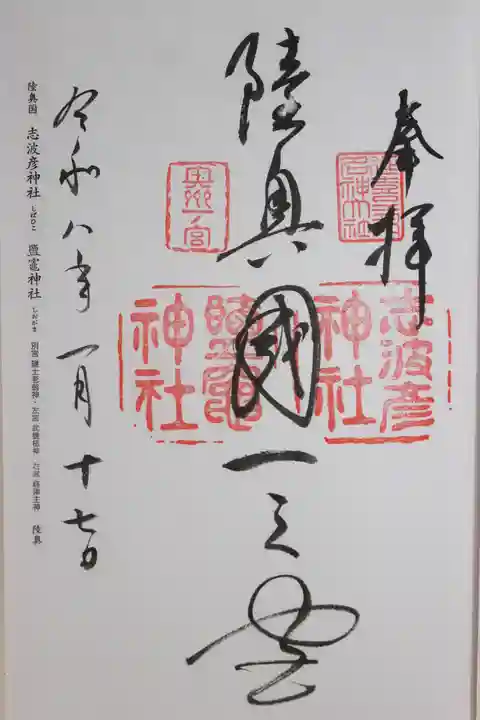 奉拝
陸奥國一之宮
志波彦神社
鹽竈神社
奥州一宮
名神大社
令和八年一月十七日
陸奥国 志波彦神社 しばひこ 鹽竈神社 しおがま 別宮 鹽土老翁神・左宮 武甕槌神・右宮 経津主神 陸奥